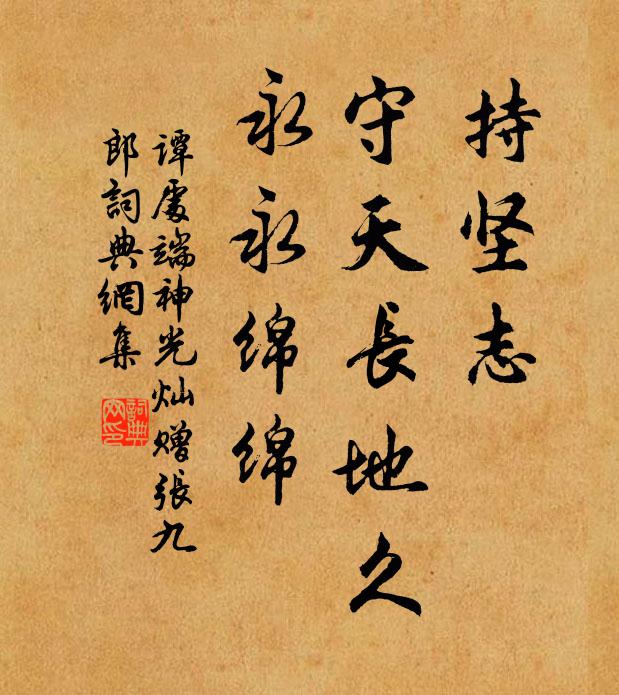 持坚志
守天長地久
永永绵绵
谭處端神光灿赠張九
郎詞典網集
詞典
网印